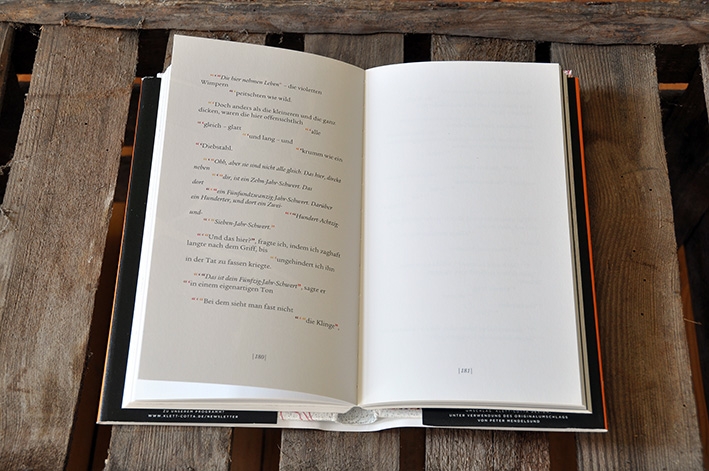 "Die hier nehmen Leben" – die violetten
Wimpern
"peitschten wie wild.
"Doch anders als die kleineren und die ganz
dicken, waren die hier offensichtlich
"alle
"gleich – glatt
"und lang – und
"krumm wie ein
"Diebstahl.
"Ohh, aber sie sind nicht alle gleich. Das hier, direkt
neben
"dir, ist ein Zehn-Jahr-Schwert. Das
dort
"ein Fünfundzwanzig-Jahr-Schwert. Darüber
ein Hunderter, und dort ein Zwei-
"Hundert-Achtzig-
und-
"Sieben-Jahr-Schwert."
"Und das hier?", fragte ich, indem ich zaghaft
langte nach dem Griff, bis
"ungehindert ich ihn
in der Tat zu fassen kriegte.
"Das ist dein Fünfzig-Jahr-Schwert", sagte er
"in einem eigenartigen Ton
"Bei dem sieht man fast nicht
"die Klinge",
[180]
[181]
ZU UNSEREM PROGRAMM
WWW.KLETT-COTTA.DE/NEWSLETTER
UNTER VERWENDUNG DES ORIGINALUMSCHLAGS
VON PETER MENDELSUND